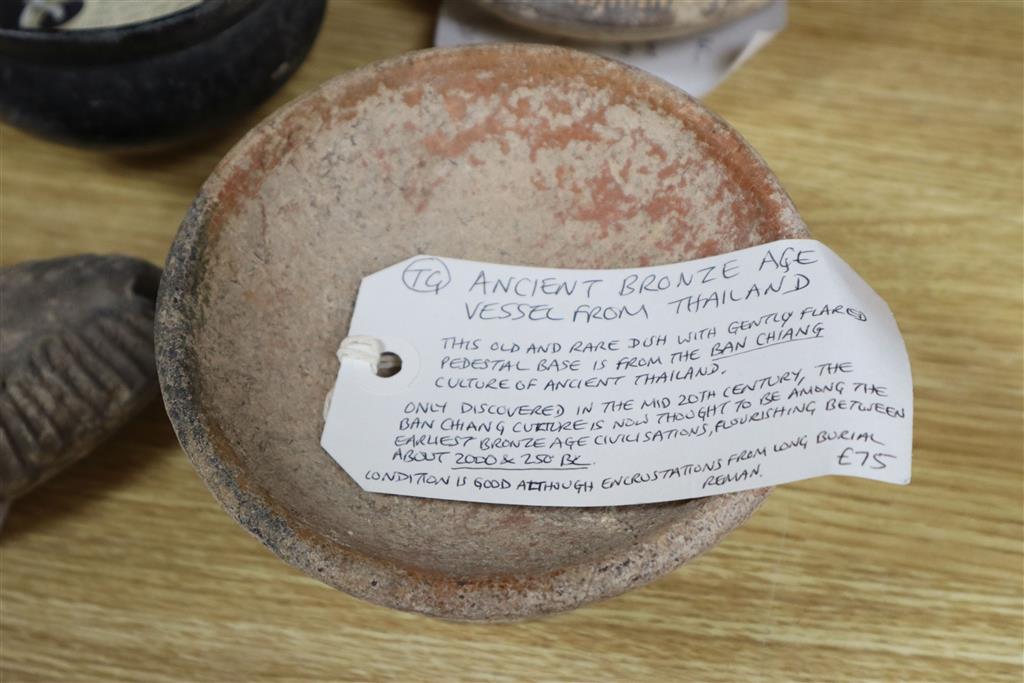 TG ANCIENT BRONZE AGE
VESSEL FROM THAILAND
THIS OLD AND RARE DISH WITH GENTLY FLARED
PEDESTAL BASE IS FROM THE BAN CHIANG
CULTURE OF ANCIENT THAILAND.
ONLY DISCOVERED IN THE MID 20TH CENTURY, THE
BAN CHIANG CULTURE IS NOW THOUGHT TO BE AMONG THE
EARLIEST BRONZE AGE CIVILISATIONS, FLOURISHING BETWEEN
ABOUT 2000 & 250 BC.
CONDITION IS GOOD ALTHOUGH ENCRUSTATIONS FROM LONG BURIAL
REMAIN.
£75